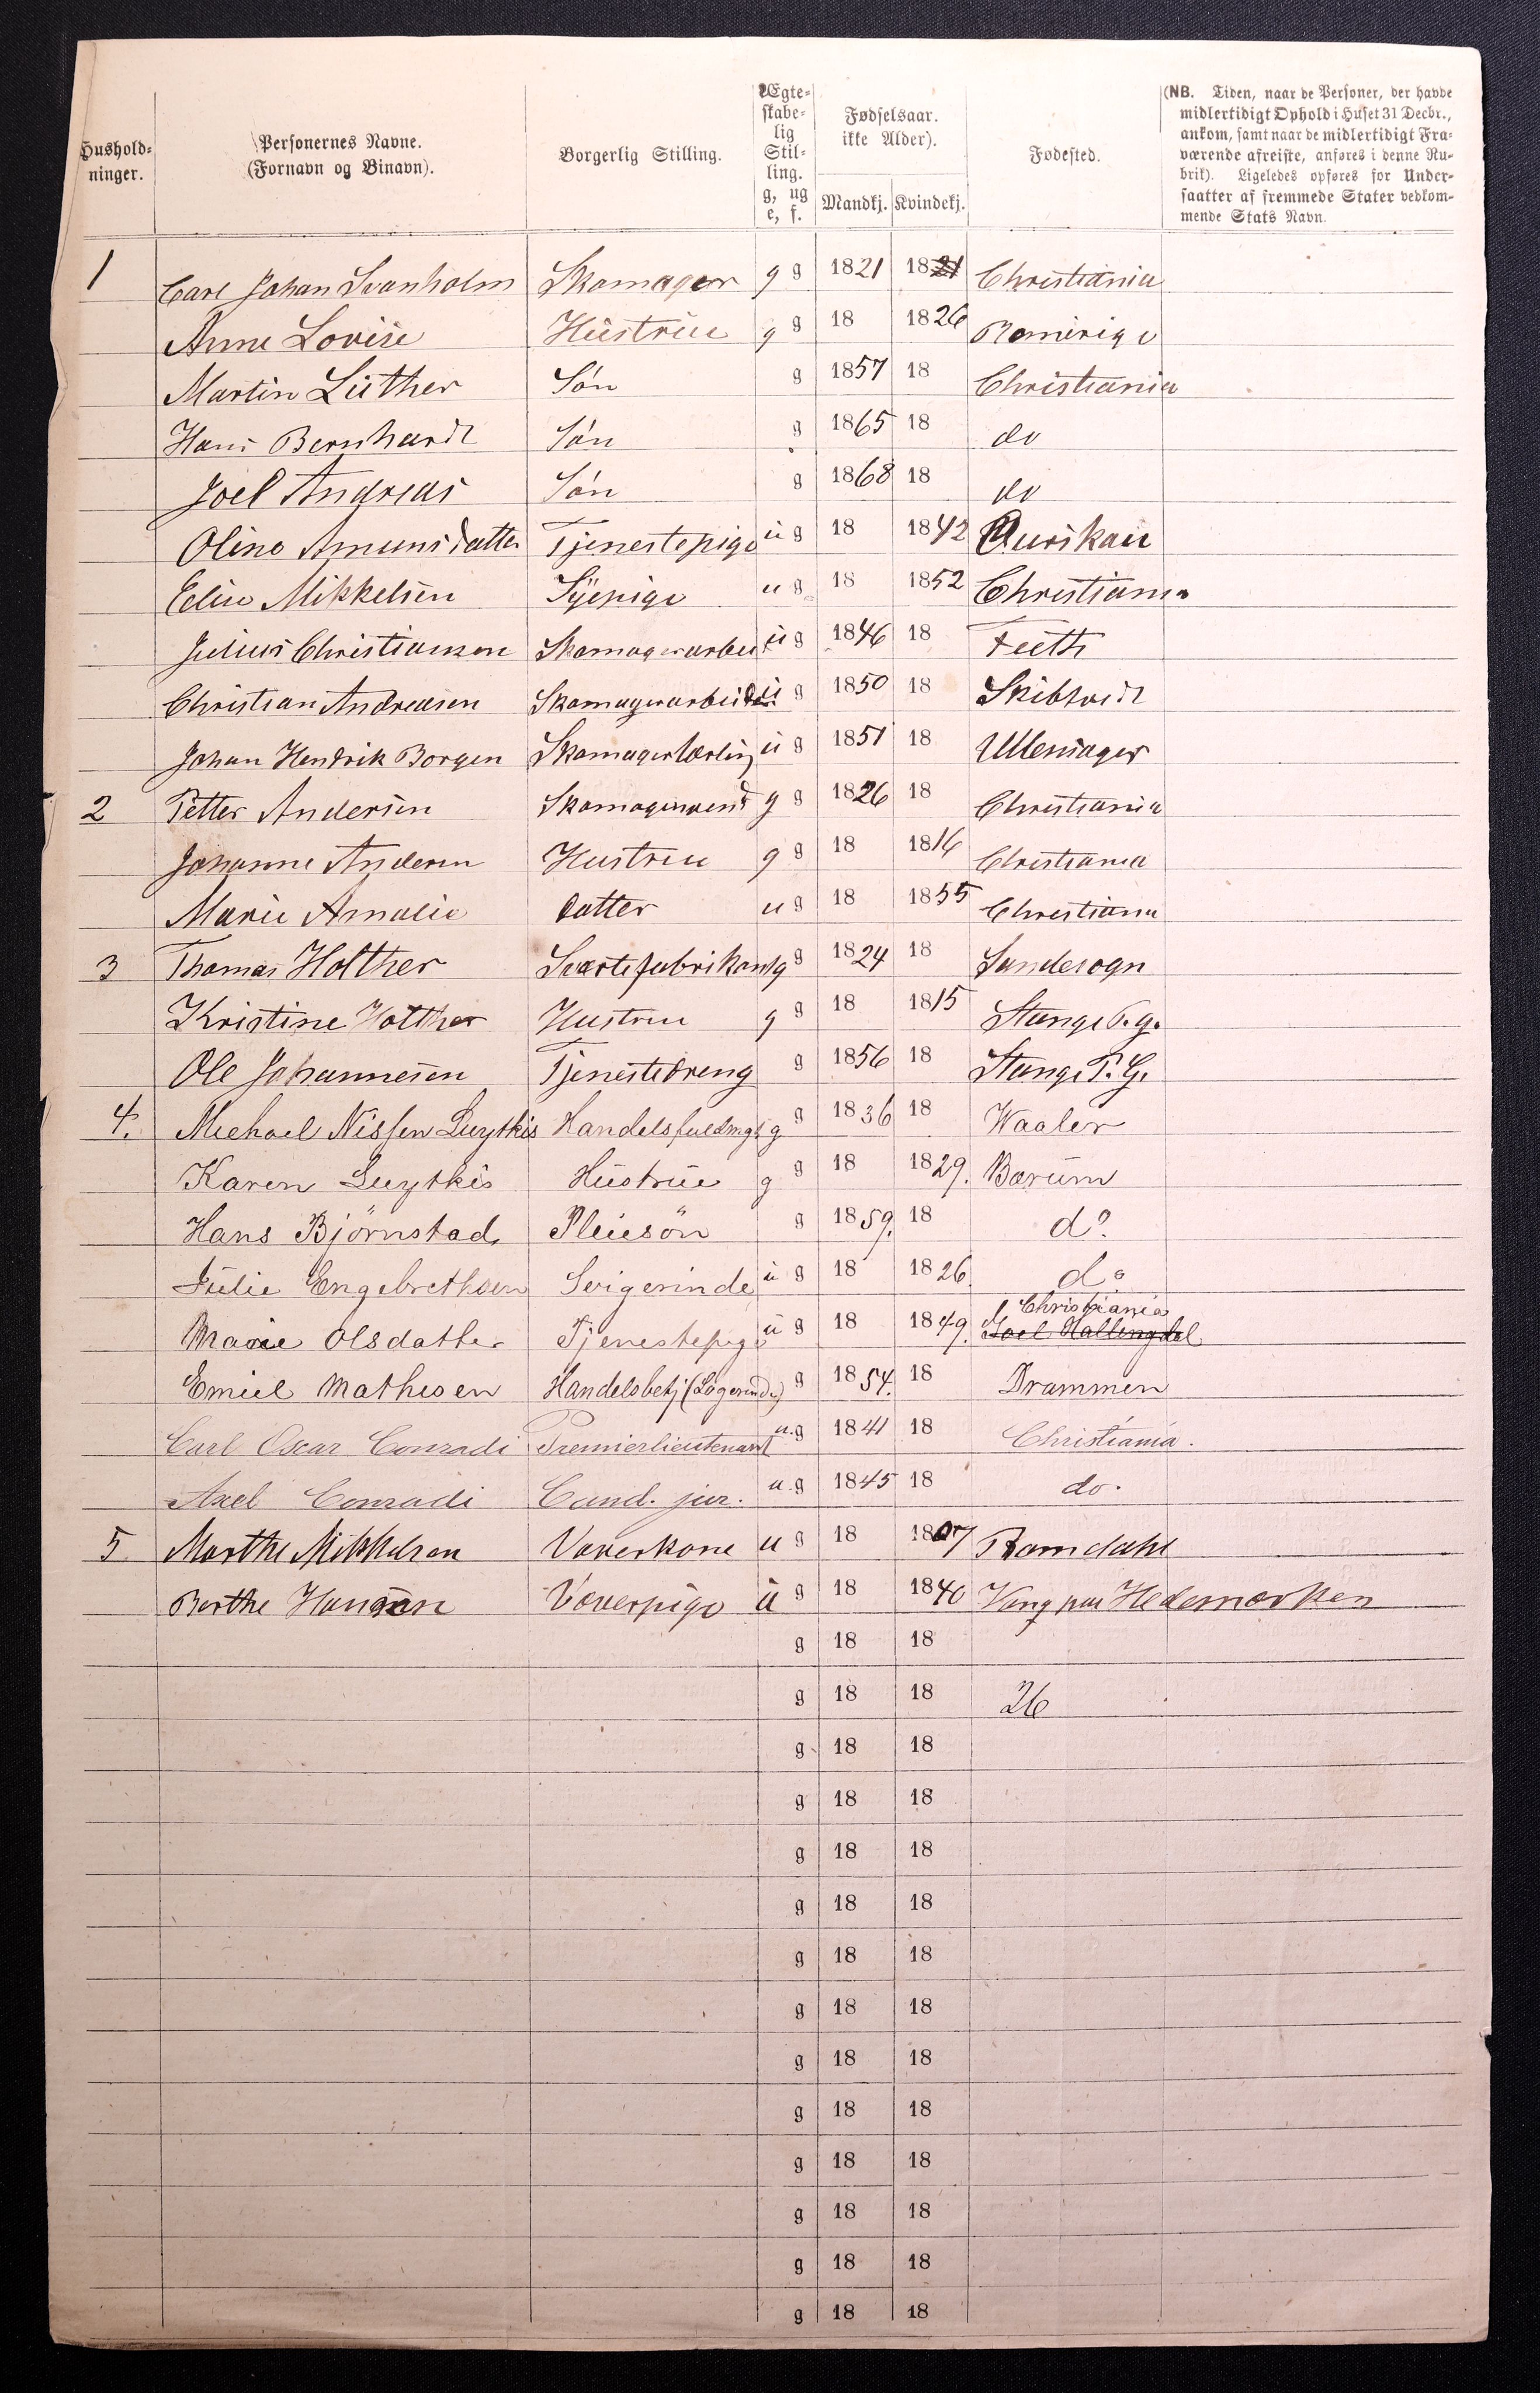 Hushold-
ninger.
Personernes Navne.
(Fornavn og Binavn).
Borgerlig Stilling.
Ægte-
skabe-
lig
Stil-
ling.
g, ug
e, f.
Fødselsaar.
ikke Alder).
Mandkj. Kvindekj.
Fødested.
(NB. Tiden, naar de Personer, der havde
midlertidigt Ophold i Huset 31 Decbr.,
ankom, samt naar de midlertidigt Fra-
værende afreiste, anføres i denne Ru-
brik). Ligeledes opføres for Under-
saatter af fremmede Stater vedkom-
mende Stats Navn.
1 Carl Johan Svanholm Skomager g g 1821 1821 Christiania
Anne Lovise Hustrue g g 18 1826 Romerige
Martin Luther Søn g 1857 18 Christiania
Hans Bernhardt Søn g 1865 18 do
Joel Andreas Søn g 1868 18 do
Oline Amunsdatter Tjenestepige u g 18 1842 Aurskau
Elise Mikkelsen Syepige u g 18 1852 Christiania
Julius Christiansen Skomagerarbei u g 1846 18 Feeth
Christian Andreasen Skomagerarbeider u g 1850 18 Skibtvedt
Johan Hendrik Borgen Skomagerlærling u g 1851 18 Ullensager
2 Petter Andersen Skomagersvend g g 1826 18 Christiania
Johanne Andersen Hustrue g g 18 1816 Christiania
Marie Amalie Datter u g 18 1855 Christiania
3 Thomas Holther Sværtefabrikant g g 1824 18 Sandesogn
Kristine Holther Hustrue g g 18 1815 Stange P. g.
Ole Johannesen Tjenestedreng g 1856 18 Stange P. G.
4. Michael Nissen Luytkis Handelsfuldmgt g g 1836 18 Waaler
Karen Luytkis Hustrue g g 18 1829. Bærum
Hans Björnstad Pleiesön g 1859. 18 do.
Julie Engebrethsen Svigerinde u g 18 1826 do
Christiania
Marie Olsdatter Tjenestepige u g 18 1849. Hallingdal
Emiel Mathisen Handelsbetj (Logerende) g 1854. 18 Drammen
Carl Oscar Conradi Premierlieutenant u. g 1841 18 Christiania.
Axel Conradi Cand. jur. u. g 1845 18 do.
5 Marthe Mikkelsen Væverkone u g 18 1807 Romdahl
Berthe Hansen Væverpige u g 18 1840 Vang paa Hedemarken
g 18 18
g 18 18 26
g 18 18
g 18 18
g 18 18
g 18 18
g 18 18
g 18 18
g 18 18
g 18 18
g 18 18
g 18 18
g 18 18
g 18 18